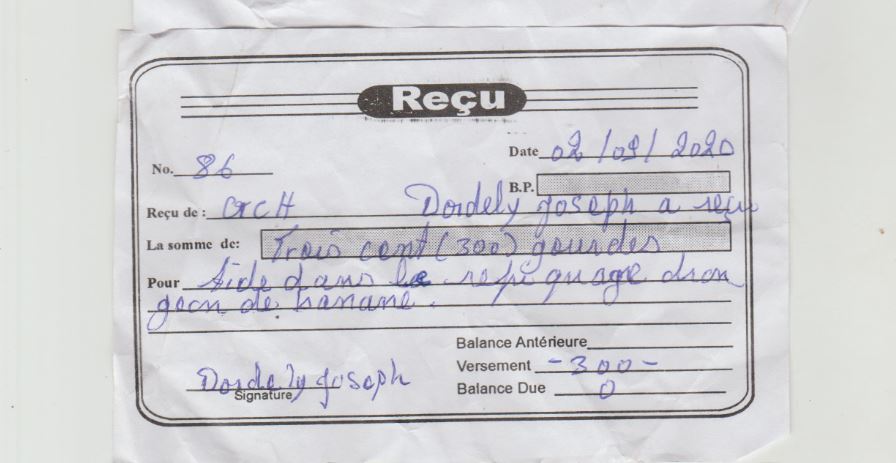 Reçu
Date 02/09/2020
No. 86
B.P.
Reçu de : Dordely joseph a reçu
La somme de: Trois cent (300) gourdes
Pour Aide dans le repiquage dran
geon de banane.
Balance Antérieure
Versement - 300 -
Balance Due 0
Dordely joseph
Signature